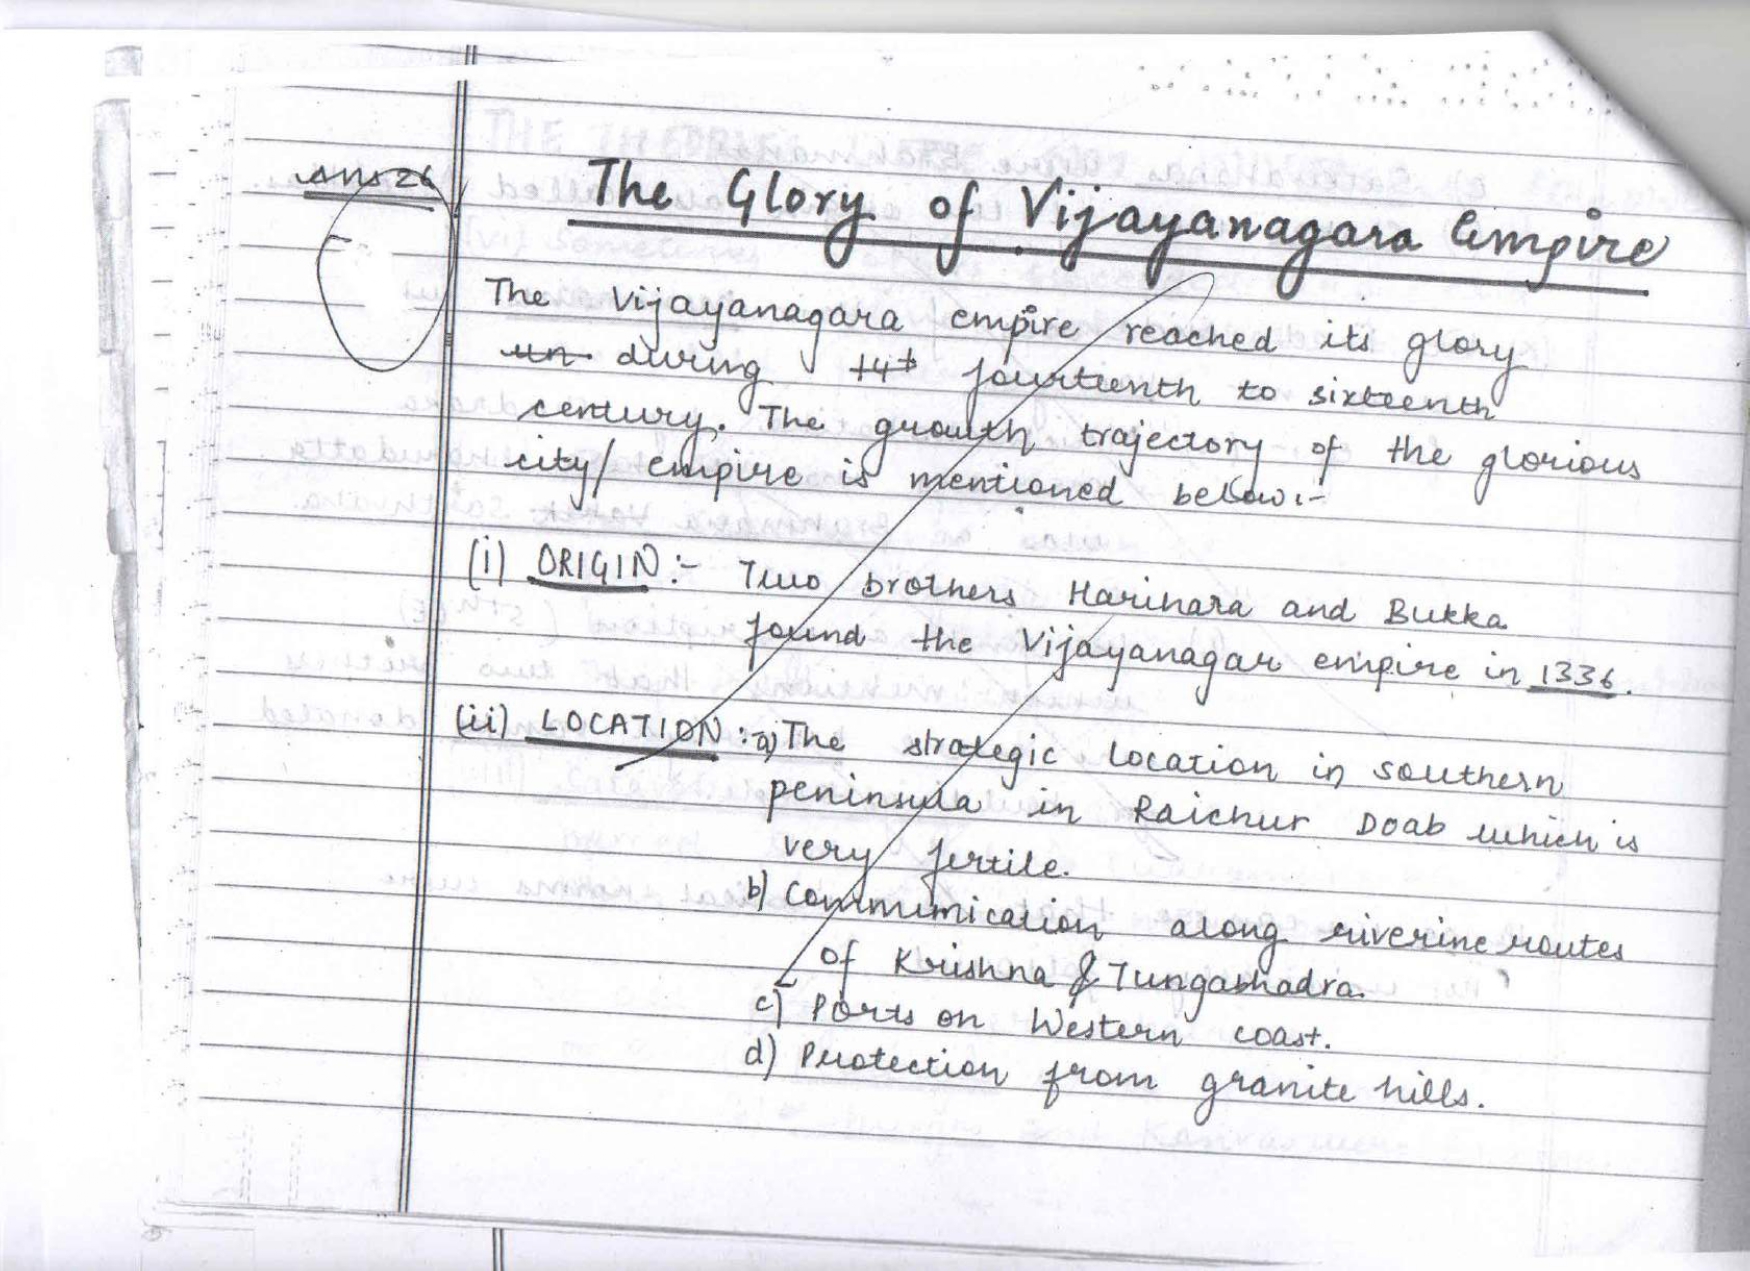 Ans 26
The Glory of Vijayanagara Empire
The Vijayanagara empire reached its glory
un during 14th fourteenth to sixteenth
century. The growth trajectory of the glorious
city/ empire is mentioned below:-
(i) ORIGIN :- Two brothers Harihara and Bukka
found the Vijayanagar empire in 1336.
(ii) LOCATION :- a) The strategic location in southern
peninsula in Raichur Doab which is
very fertile.
b) Communication along riverine routes
of Krishna & Tungabhadra.
c) Ports on Western coast.
d) Protection from granite hills.